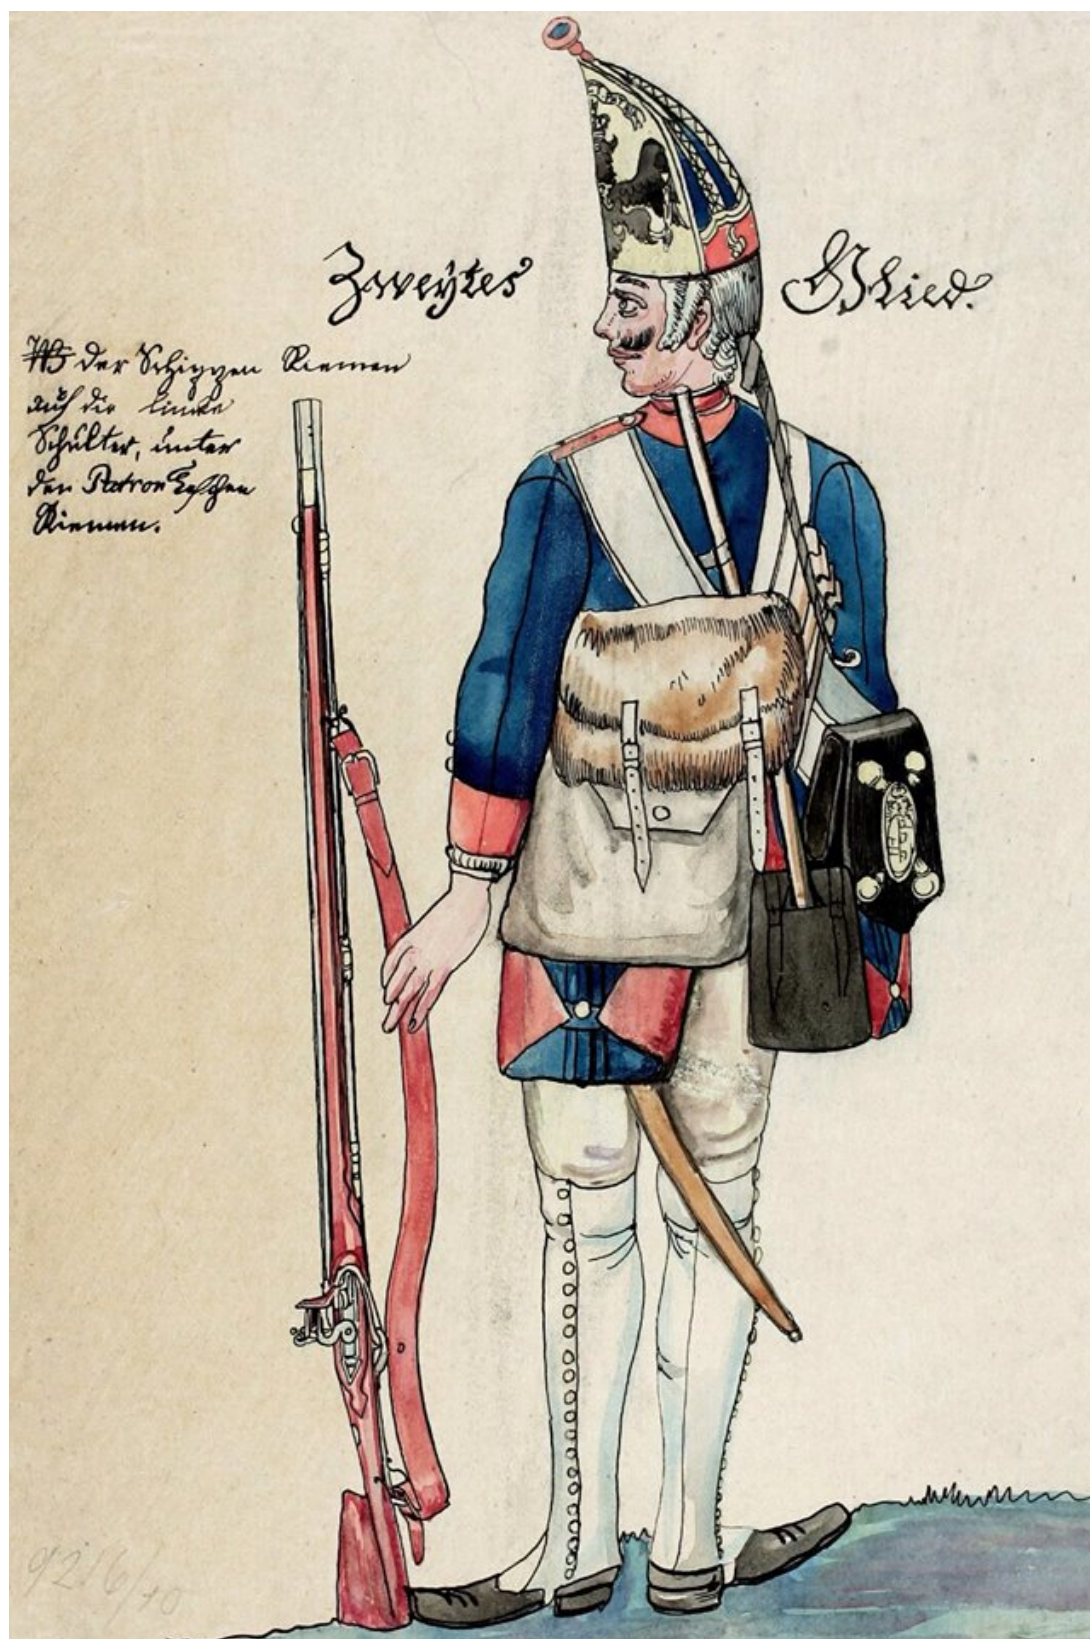 Zweytes Glied.
NB der Schippen Riemen
auf die lincke
Schulter, unter
den Patrontaschen
Riemen.